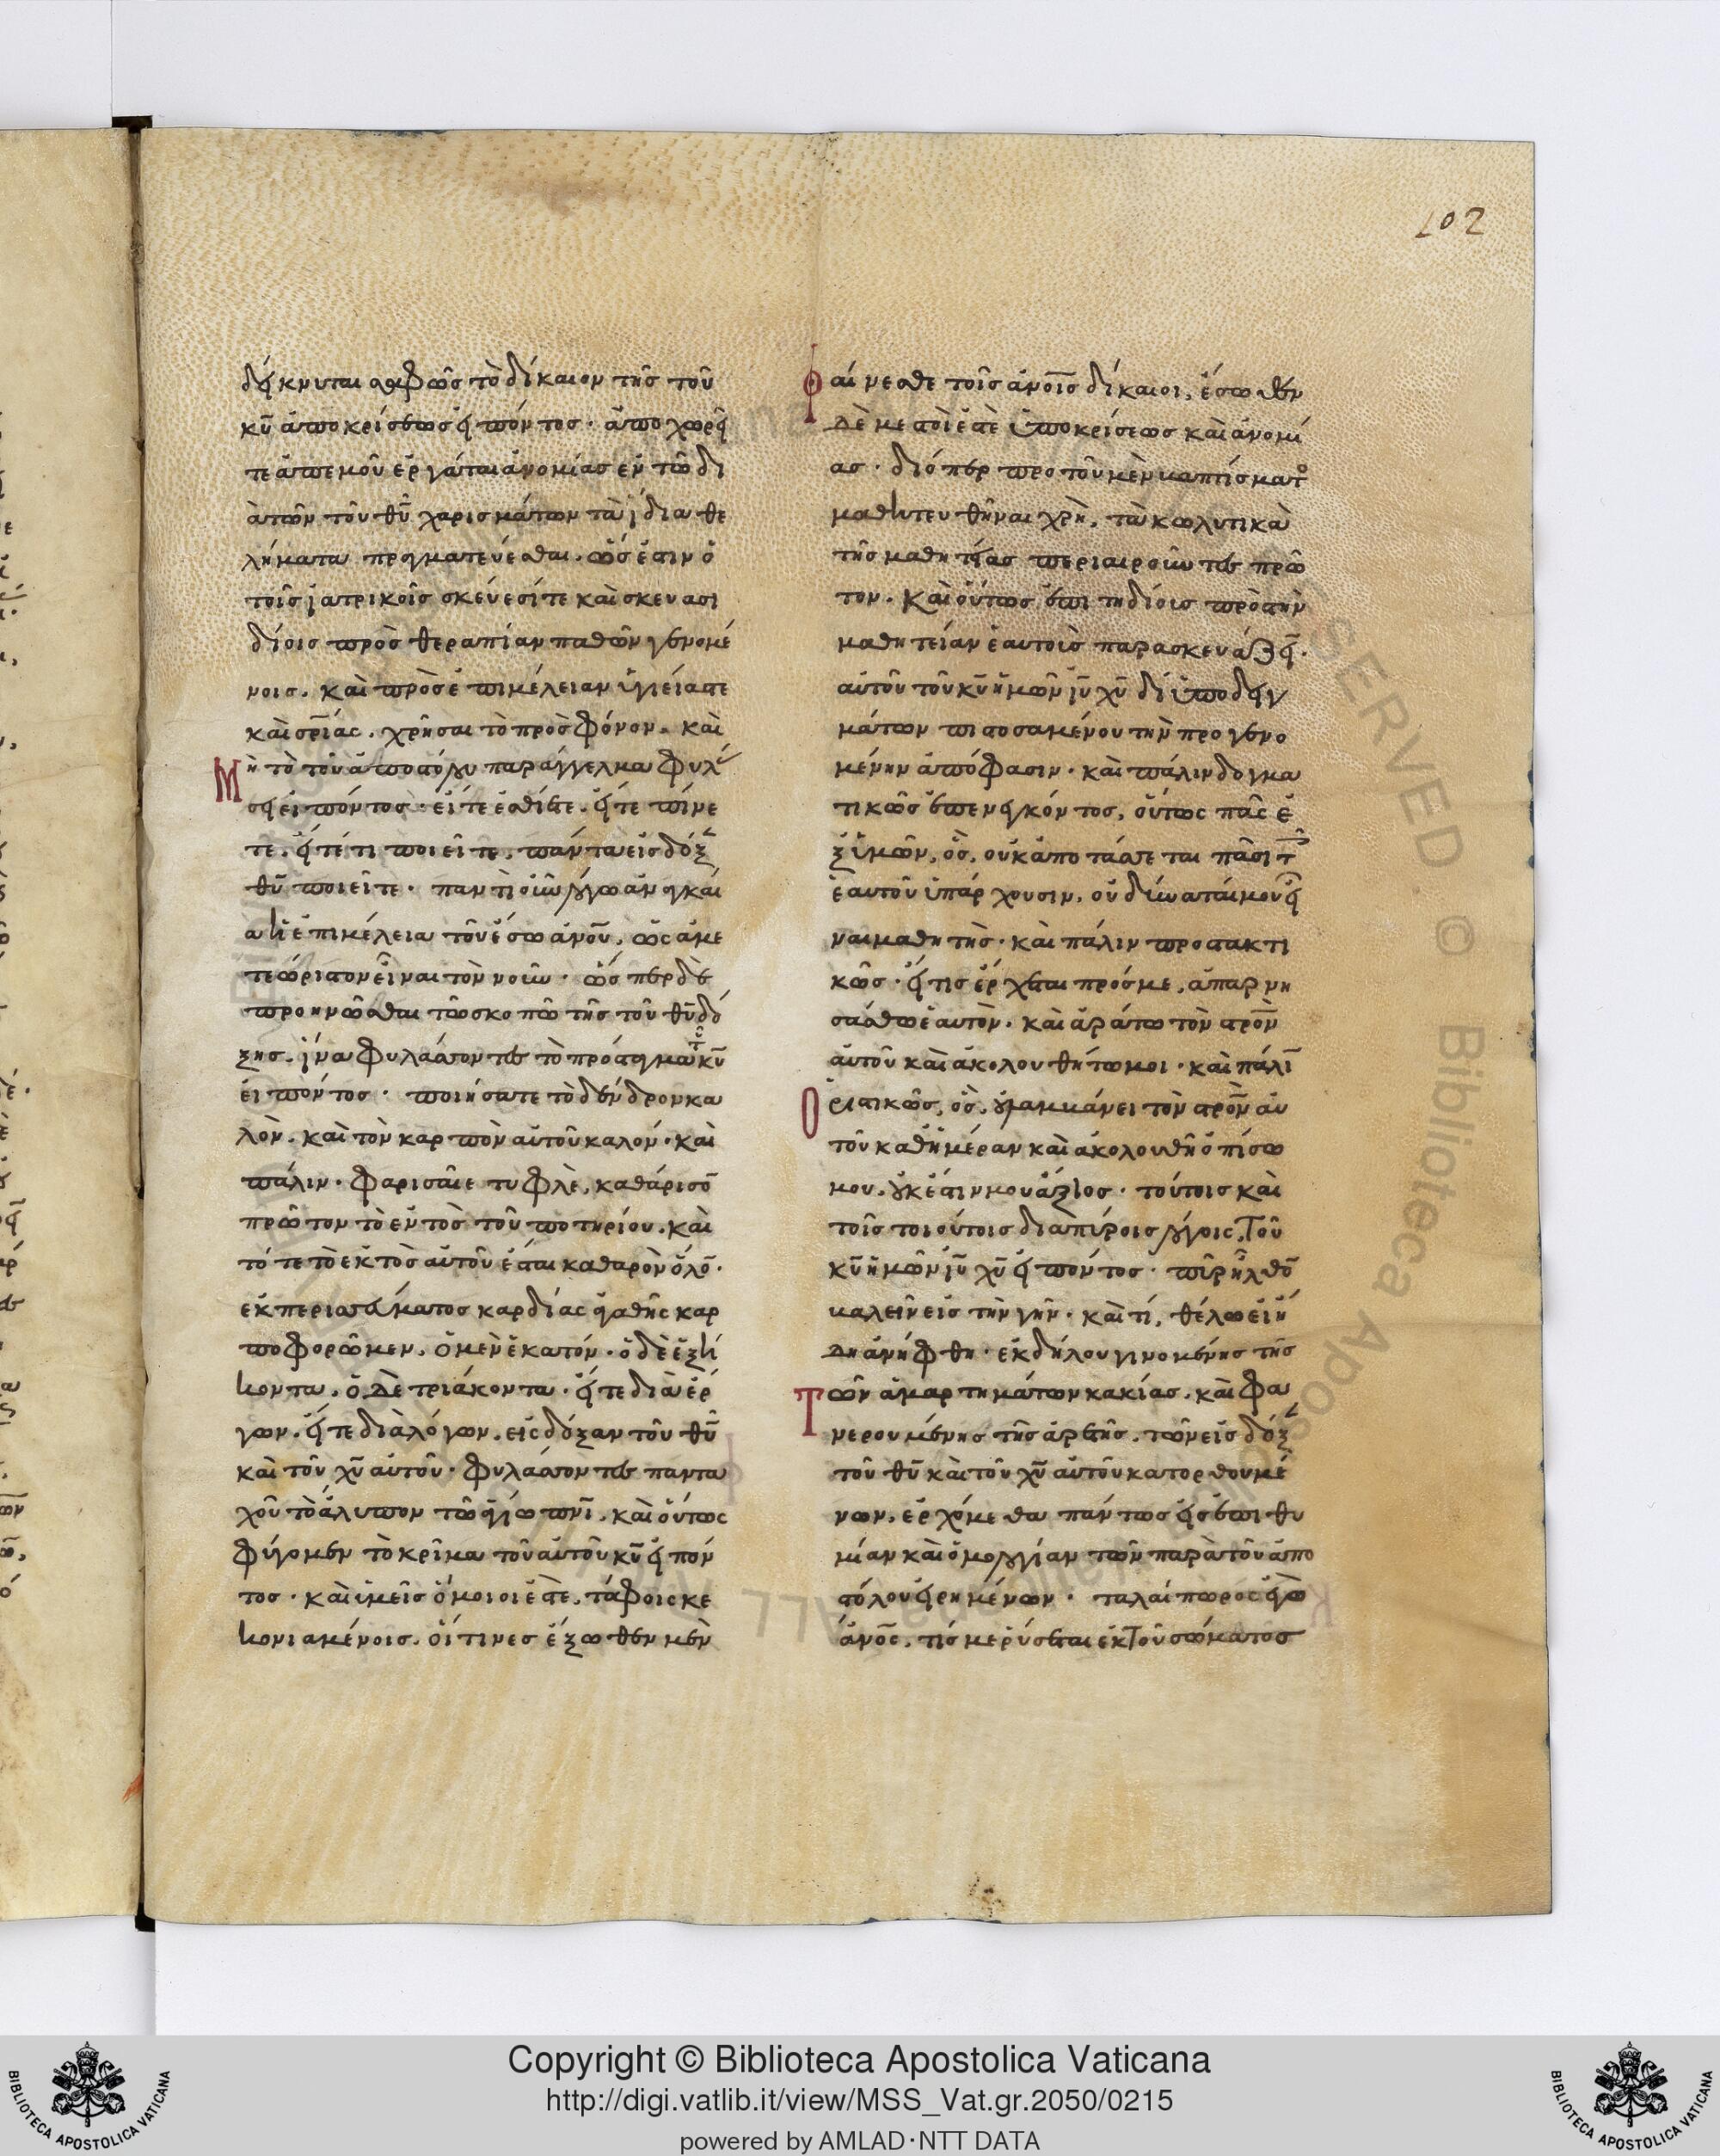 102
δείκνυται σαφῶς τὸ δίκαιον τῆς τοῦ
κῡ ἀποκρίσεως εἰπόντος· ἀποχωρεῖ
τε ἀπεμοῦ ἐργάται ἀνομίας ἐν τῶ δι
ὰ τῶν τοῦ θῡ χαρισμάτων τὰ ἴδια θε
λήματα πραγματεύεσθαι. ὡς ἐστιν ὁ
τοῖς ἰατρικοῖς σκεύεσί τε καὶ σκευασι
δίοις πρὸς θεραπίαν παθῶν γενομέ
νοις. καὶ πρὸς ἐπιμέλειαν ὑγιείας τε
καὶ σρ̄ίας. χρῆσαι τὸ πρὸς φόνον. καὶ
μὴ τὸ τοῦ ἀποστόλου παράγγελμα φυλά
σει εἰπόντος· εἴτε ἐσθίετε. εἴτε πίνε
τε. εἴτέ τι ποιεῖτε. πάντα εἰς δόξ
θῡ ποιεῖτε· παντὶ οὖν λόγω ἀναγκαί
α ἡ ἐπιμέλεια τοῦ ἔσω ἀνοῡ. ὡς ἀμε
τεώριστον εἶναι τὸν νοῦν· ὥσπερ δὲ
προσηνῶσθαι τῶ σκοπῶ τῆς τοῦ θῡ δό
ξης. ἵνα φυλάσσοντες τὸ πρόσταγμα τοῦ κῡ
εἰπόντος· ποιήσατε τὸ δένδρον κα
λὸν. καὶ τὸν καρπὸν αὐτοῦ καλόν· καὶ
πάλιν· φαρισαῖε τυφλὲ, καθάρισο̄
πρῶτον τὸ ἐντὸς τοῦ ποτηρίου. καὶ
τότε τὸ ἐκτὸς αὐτοῦ ἔσται καθαρὸν ὅλο̄·
ἐκ περισσεύματος καρδίας ἀγαθῆς καρ
ποφορῶμεν. ὁ μὲν ἑκατόν· ὁ δὲ ἑξή
κοντα. ὁ δὲ τριάκοντα· εἴτε διὰ ἔρ
γων. εἴτε διὰ λόγων. εἰς δόξαν τοῦ θῡ
καὶ τοῦ χῡ αὐτοῦ· φυλάσσοντες παντα
χοῦ τὸ ἄλυπον τῶ ἁγίω πνῑ. καὶ οὕτως
φύγομεν τὸ κρῖμα τοῦ αὐτοῦ κῡ εἰπόν
τος· καὶ ὑμεῖς ὅμοιοι ἐστε. τάφοις κε
κονιαμένοις. οἵτινες ἔξωθεν μὲν
φαίνεσθε τοῖς ἀνοῑς δίκαιοι, ἔσωθεν
δὲ μεστοί ἐστὲ ὑποκρίσεως καὶ ἀνομί
ας· διόπερ πρὸ τοῦ μὲν βαπτίσματο
μαθητευθῆναι χρὴ, τὰ κωλυτικὰ
τῆς μαθητείας περιαιροῦντες πρῶ
τον. καὶ οὕτως ἐπιτηδίοις πρὸς τὴν
μαθητείαν ἑαυτοὺς παρασκευάζεῑ·
αὐτοῦ τοῦ κῡ ἡμῶν ῑῡ χῡ δι ὑποδειγ
μάτων πιστοσαμένου τὴν προγενο
μένην ἀπόφασιν· καὶ πάλιν δογμα
τικῶς ἐπενεγκόντος, οὕτως πᾶς ἐ
ξ ὑμῶν, ὃς, οὐκ ἀποτάσσεται πᾶσι τοῖς
ἑαυτοῦ ὑπάρχουσιν, οὐ δύναταί μου εἶ
ναι μαθητὴς· καὶ πάλιν προστακτι
κῶς· εἴ τις ἔρχεται πρόσ με, ἀπαρνη
σάσθω ἑαυτὸν. καὶ ἀράτω τὸν στρο̄ν
αὐτοῦ καὶ ἀκολουθήτω μοι· καὶ πάλῑ
ὁριστικῶς, ὃς, οὐ λαμβάνει τὸν στρο̄ν αὐ
τοῦ καθημέραν καὶ ἀκολουθῆ ὀπίσω
μου. οὐκ ἔστιν μου ἄξιος· τούτοις καὶ
τοῖς τοιούτοις διαπύροις λόγοις, τοῦ
κῡ ἡμῶν ῑῡ χῡ εἰπόντος· πῦρ ἦλθο̄
βαλεῖν εἰς τὴν γῆν· καὶ τί, θέλω εἰ ἤ
δη ἀνήφθη· ἐκδήλου γινομένης τῆς
τῶν ἁμαρτημάτων κακίας. καὶ φα
νερουμένης τῆς ἀρετῆς. τῶν εἰς δόξ
τοῦ θῡ καὶ τοῦ χῡ αὐτοῦ κατορθουμέ
νων, ἐρχόμεθα πάντως εἰς ἐπιθυ
μίαν καὶ ὁμολογίαν τῶν παρὰ τοῦ ἀπο
στόλου εἰρημένων· ταλαίπωρος ἐγὼ
ἄνο̄ς, τίς με ῥύσεται ἐκ τοῦ σώματος
Copyright © Biblioteca Apostolica Vaticana
http://digi.vatlib.it/view/MSS_Vat.gr.2050/0215
powered by AMLAD·NTT DATA
BIBLIOTECA APOSTOLICA VATICANA
BIBLIOTECA APOSTOLICA VATICANA